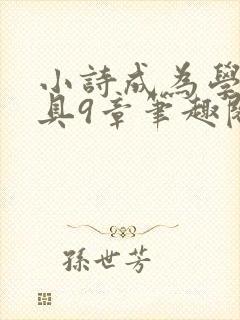 小詩成為學
具9章筆趣閣
孫世芳